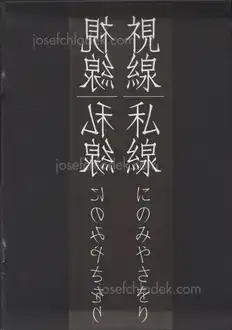 視線
私線
にのみやさをり
視線
私線
にのみやさをり
josefchladek.com
josefchladek.com
josefchladek.com
josefchladek.com